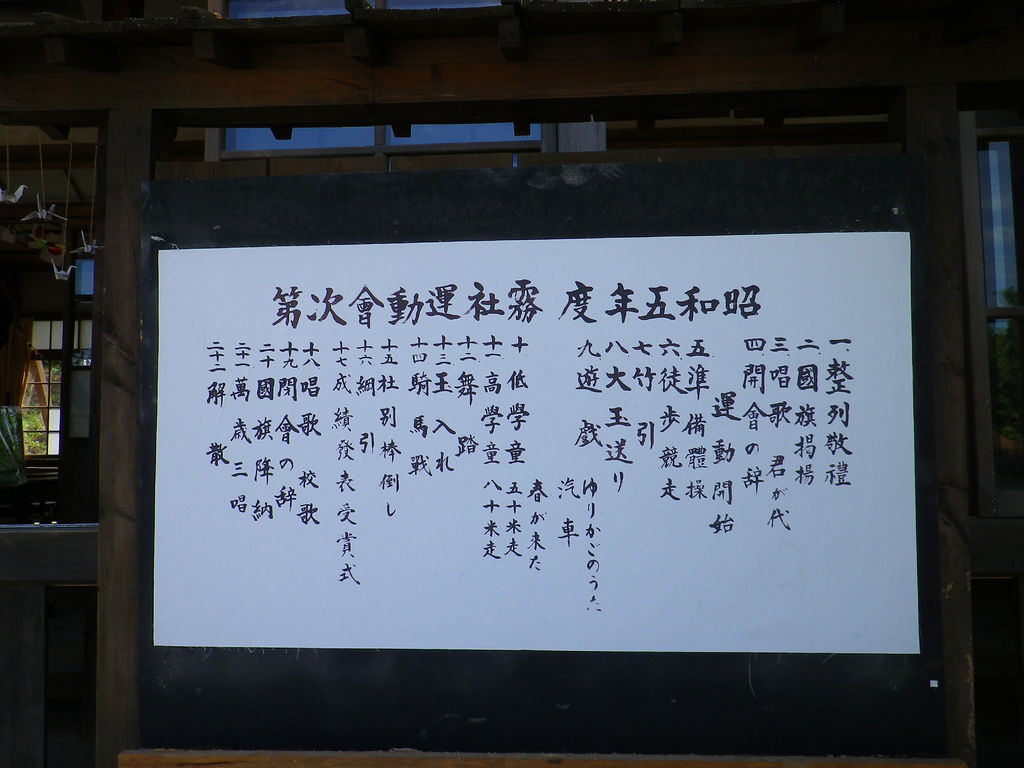 昭和五年度 霧社運動會次第
一、整列敬禮
二、國旗掲揚
三、唱歌 君が代
四、開會の辞
運動開始
五、準備體操
六、徒歩競走
七、竹引
八、大玉送り
九、遊戯
ゆりかごのうた
汽車
春が来た
十、低學童 五十米走
十一、高學童 八十米走
十二、舞踏
十三、玉入れ
十四、騎馬戦
十五、社別棒倒し
十六、綱引
十七、成績發表受賞式
十八、唱歌 校歌
十九、閉會の辞
二十、國旗降納
二十一、萬歳三唱
二十二、解散